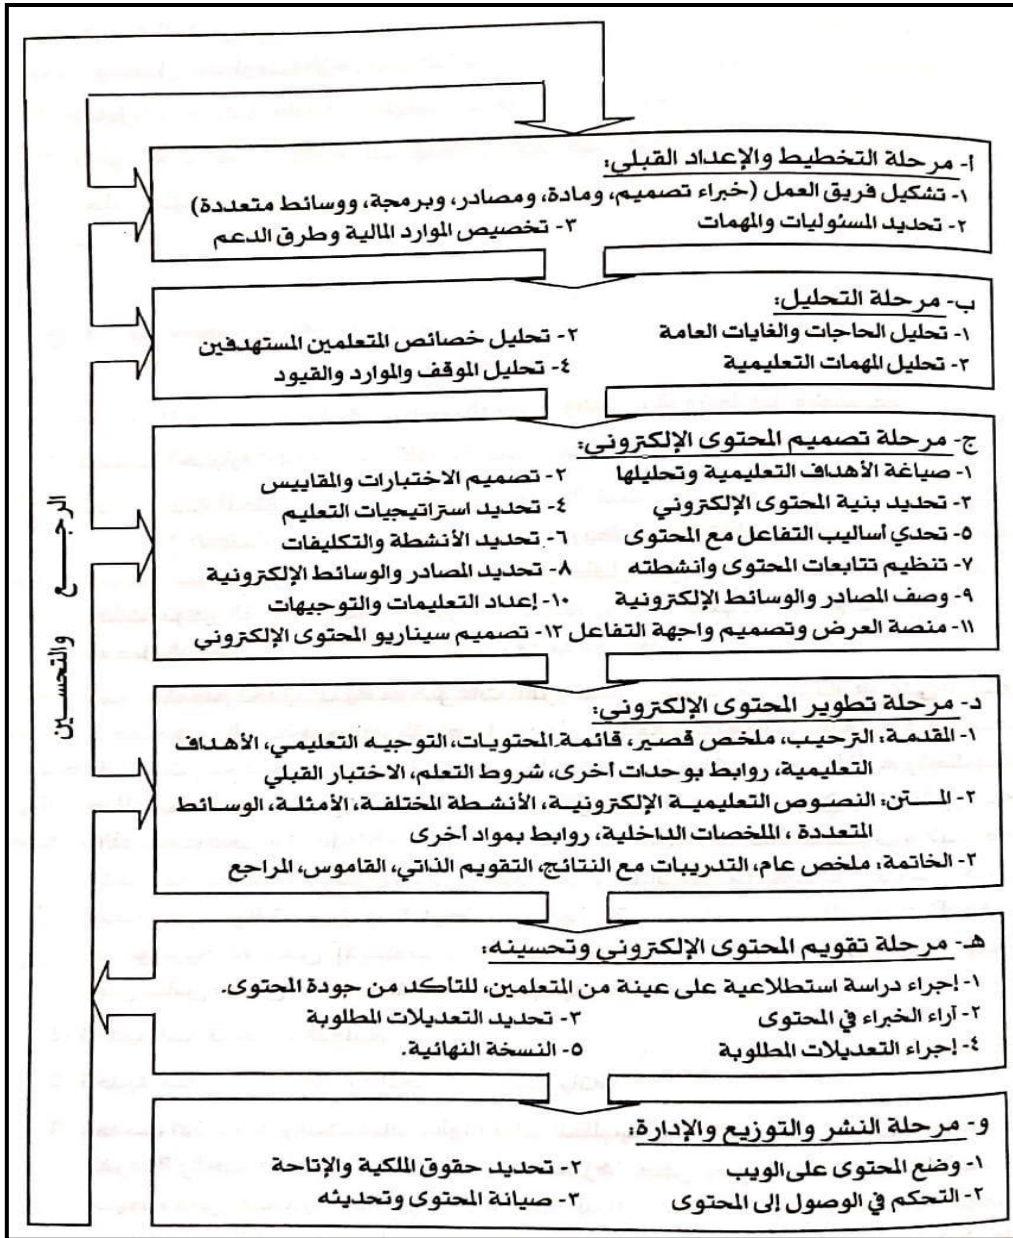 أ- مرحلة التخطيط والإعداد القبلي:
١- تشكيل فريق العمل (خبراء تصميم، ومادة، ومصادر، وبرمجة، ووسائط متعددة)
٢- تحديد المسئوليات والمهمات ٣- تخصيص الموارد المالية وطرق الدعم
ب- مرحلة التحليل:
١- تحليل الحاجات والغايات العامة ٢- تحليل خصائص المتعلمين المستهدفين
٣- تحليل المهمات التعليمية ٤- تحليل الموقف والموارد والقيود
ج- مرحلة تصميم المحتوى الإلكتروني:
١- صياغة الأهداف التعليمية وتحليلها ٢- تصميم الاختبارات والمقاييس
٣- تحديد بنية المحتوى الإلكتروني ٤- تحديد استراتيجيات التعليم
٥- تحدي أساليب التفاعل مع المحتوى ٦- تحديد الأنشطة والتكليفات
٧- تنظيم تتابعات المحتوى وانشطته ٨- تحديد المصادر والوسائط الإلكترونية
٩- وصف المصادر والوسائط الإلكترونية ١٠- إعداد التعليمات والتوجيهات
١١- منصة العرض وتصميم واجهة التفاعل ١٢- تصميم سيناريو المحتوى الإلكتروني
د- مرحلة تطوير المحتوى الإلكتروني:
١- المقدمة: الترحيب، ملخص قصير، قائمة المحتويات، التوجيه التعليمي، الأهداف
التعليمية، روابط بوحدات أخرى، شروط التعلم، الاختبار القبلي
٢- المتن: النصوص التعليمية الإلكترونية، الأنشطة المختلفة، الأمثلة، الوسائط
المتعددة، الملخصات الداخلية، روابط بمواد أخرى
٣- الخاتمة: ملخص عام، التدريبات مع النتائج، التقويم الذاتي، القاموس، المراجع
هـ- مرحلة تقويم المحتوى الإلكتروني وتحسينه:
١- إجراء دراسة استطلاعية على عينة من المتعلمين، للتأكد من جودة المحتوى.
٢- آراء الخبراء في المحتوى ٣- تحديد التعديلات المطلوبة
٤- إجراء التعديلات المطلوبة ٥- النسخة النهائية.
و- مرحلة النشر والتوزيع والإدارة:
١- وضع المحتوى على الويب ٢- تحديد حقوق الملكية والإتاحة
٢- التحكم في الوصول إلى المحتوى ٣- صيانة المحتوى وتحديثه
الرجع والتحسين